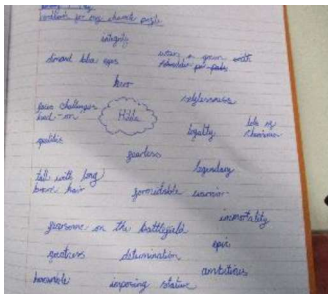 integrity
almond blue eyes
wears a green with
shoulder pin-pads
hero
selflessness
face challenges
head-on
loyalty
lots of
charisma
qualities
fearless
legendary
tall with long
brown hair
formidable warrior
immortality
fearsome on the battlefield
epic
greatness
determination
ambitious
honorable
imposing stature